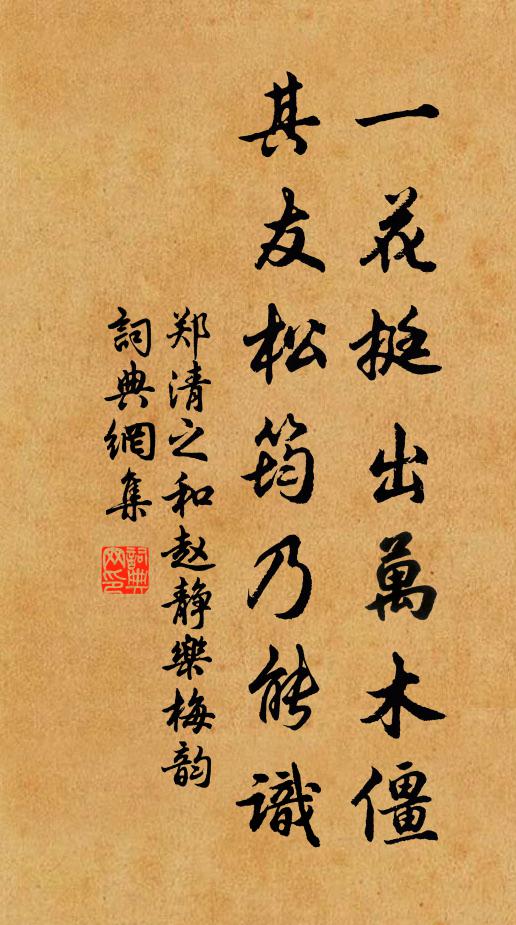 一花挺出萬木僵
其友松筠乃能識
郑清之和赵静樂梅韵
詞典網集